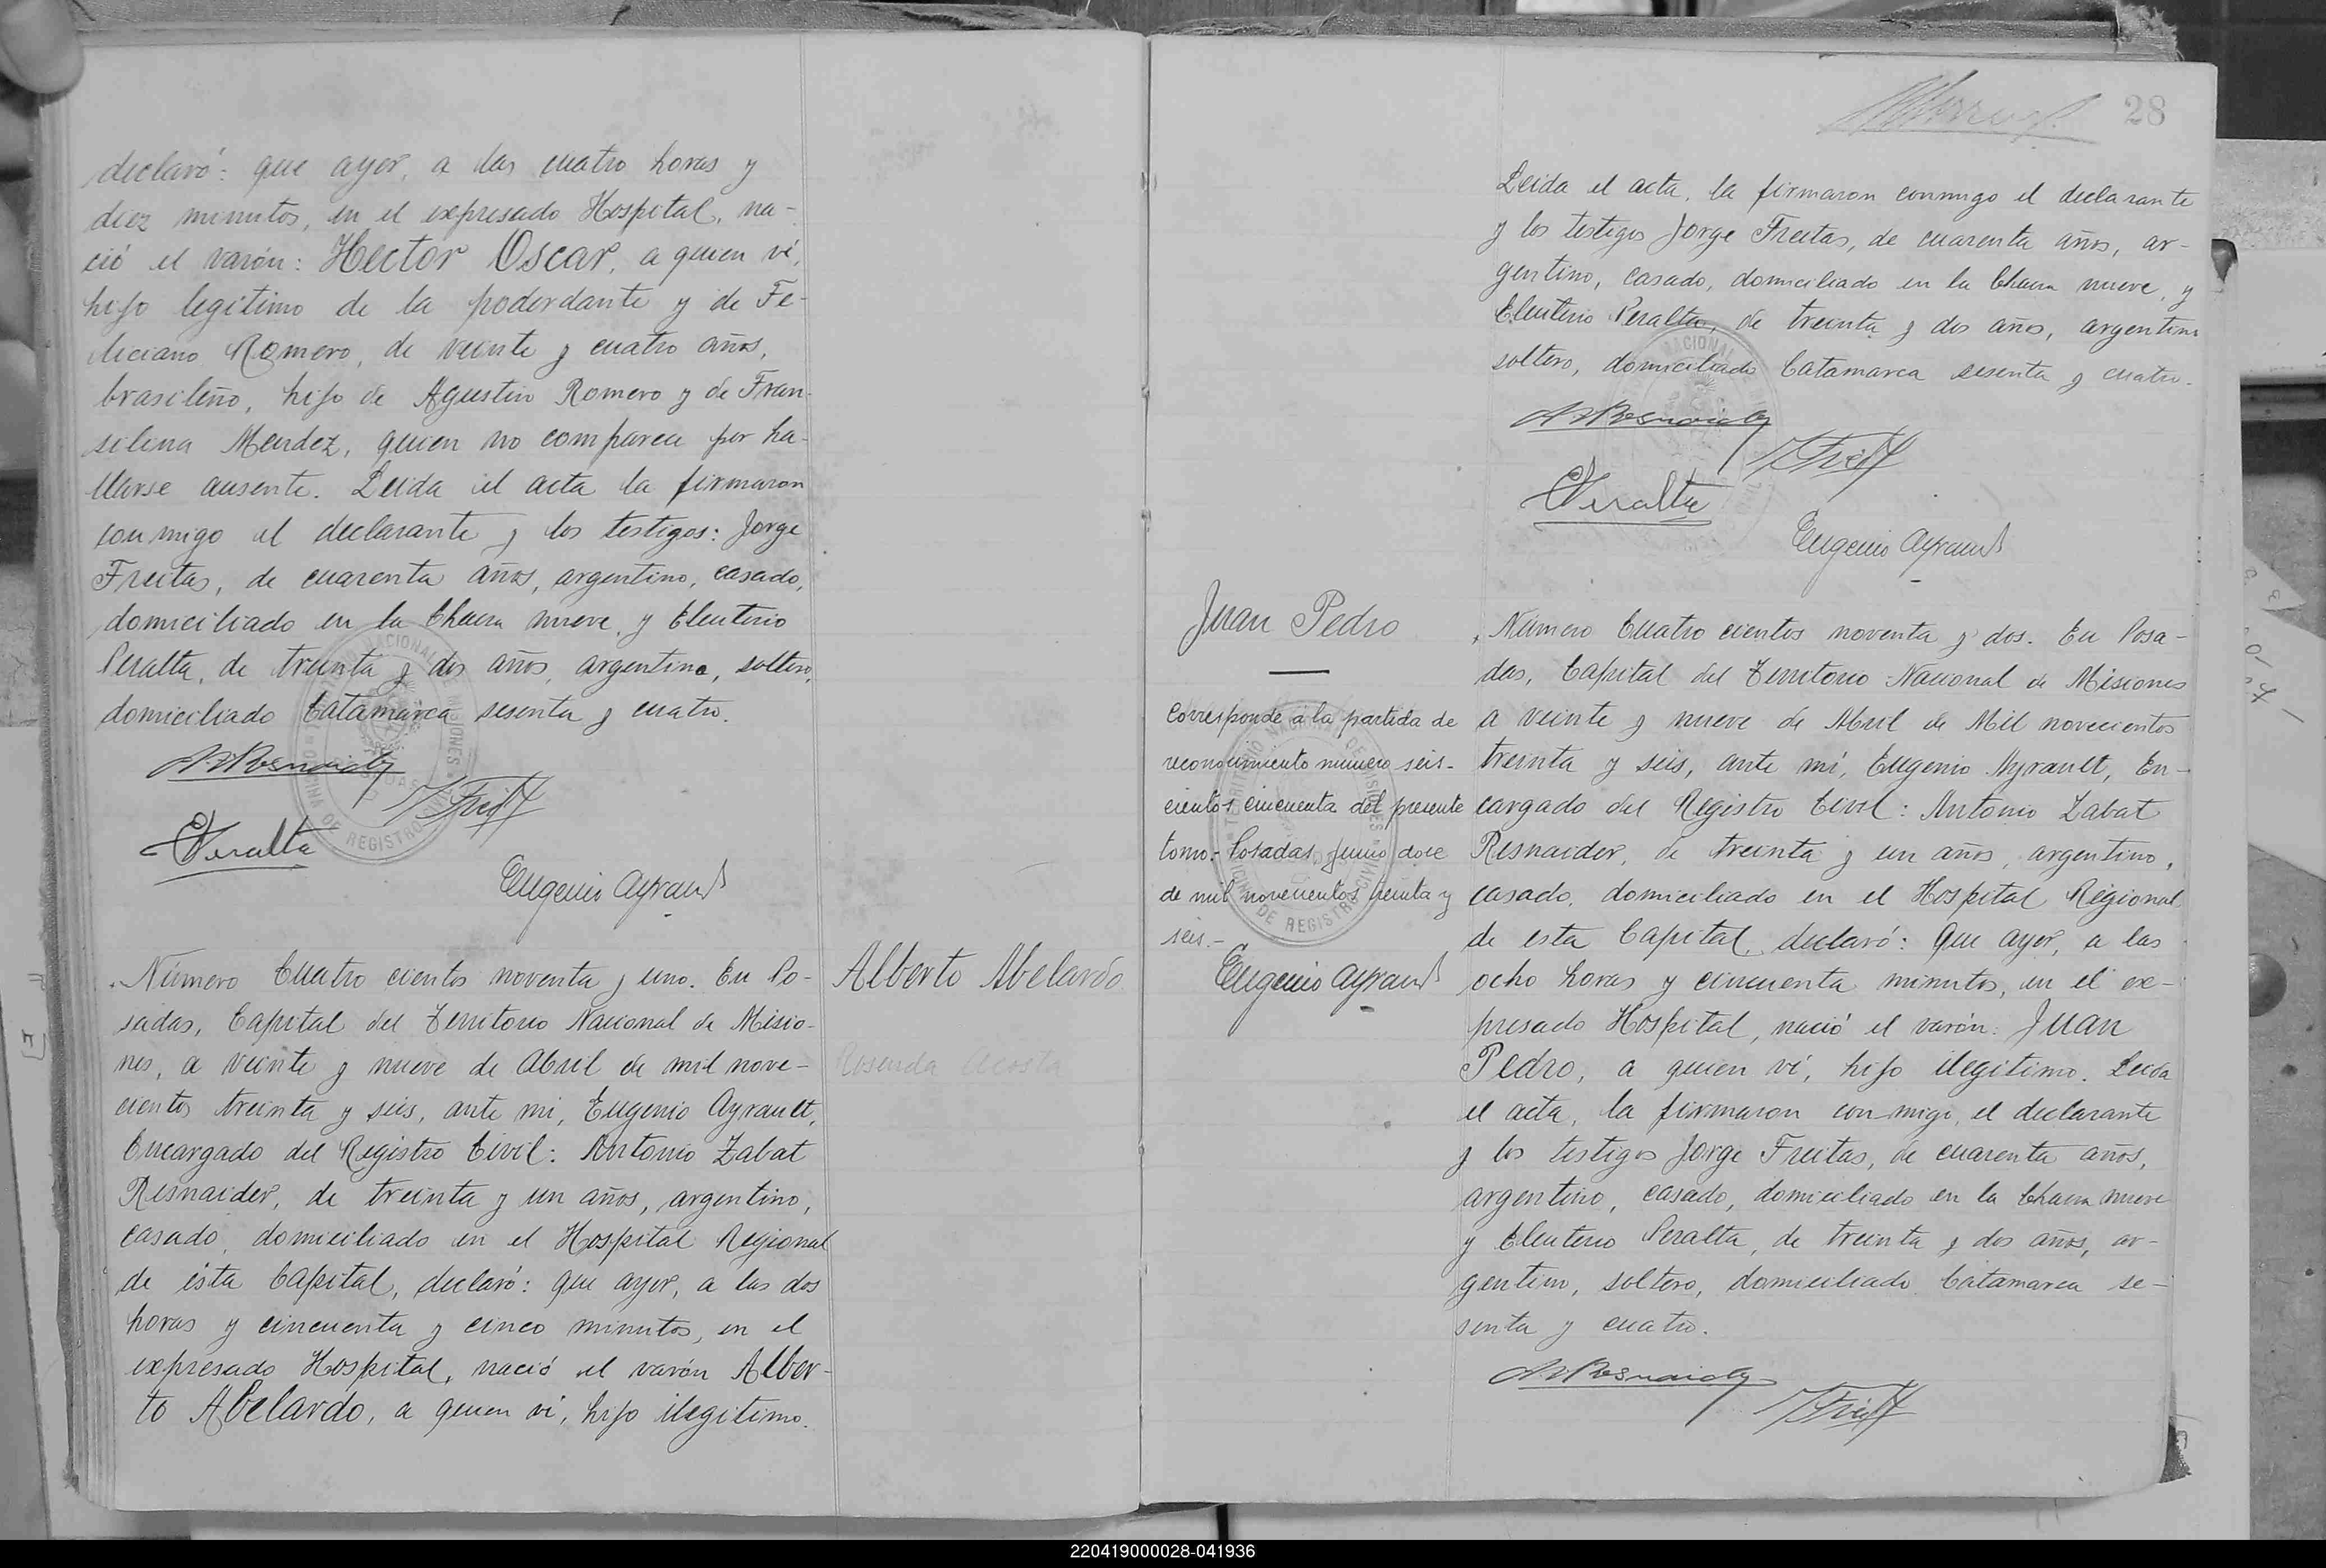 declaró: que ayer, a las cuatro horas y
diez minutos, en el expresado Hospital, na-
ció el varón: Hector Oscar, a quien ví,
hijo legitimo de la poderdante y de Fe-
liciano Romero, de veinte y cuatro años,
brasileño, hijo de Agustin Romero y de Fran-
silina Mendez, quien no comparece por ha-
llarse ausente. Leida el acta la firmaron
conmigo el declarante y los testigos: Jorge
Freitas, de cuarenta años, argentino, casado,
domiciliado en la Chacra nueve, y Eleuterio
Peralta, de treinta y dos años, argentino, soltero,
domiciliado Catamarca sesenta y cuatro.
EPeralta
Eugenio Ayrault
Número Cuatro cientos noventa y uno. En Po-
sadas, Capital del Territorio Nacional de Misio-
nes, a veinte y nueve de Abril de mil nove-
cientos treinta y seis, ante mi, Eugenio Ayrault,
Encargado del Registro Civil: Antonio Zabat
Resnaider, de treinta y un años, argentino,
casado, domiciliado en el Hospital Regional
de ésta Capital, declaró: que ayer, a las dos
horas y cincuenta y cinco minutos, en el
expresado Hospital, nació el varón Alber-
to Abelardo, a quien ví, hijo ilegitimo.
Alberto Abelardo
Rosenda Acosta
28
Leida el acta, la firmaron conmigo el declarante
y los testigos Jorge Freitas, de cuarenta años, ar-
gentino, casado, domiciliado en la Chacra nueve, y
Eleuterio Peralta, de treinta y dos años, argentino
soltero, domiciliado Catamarca sesenta y cuatro.
EPeralta
Eugenio Ayrault
Juan Pedro
Corresponde a la partida de
reconocimiento número seis-
cientos cincuenta del presente
tomo.- Posadas, junio doce
de mil novecientos treinta y
seis.-
Eugenio Ayrault
Número Cuatro cientos noventa y dos. En Posa-
das, Capital del Territorio Nacional de Misiones
a veinte y nueve de Abril de Mil novecientos
treinta y seis, ante mí, Eugenio Ayrault, En-
cargado del Registro Civil: Antonio Zabat
Resnaider, de treinta y un años, argentino,
casado, domiciliado en el Hospital Regional
de esta Capital, declaró: que ayer, a las
ocho horas y cincuenta minutos, en el ex-
presado Hospital, nació el varón: Juan
Pedro, a quien ví, hijo ilegitimo. Leida
el acta, la firmaron conmigo, el declarante
y los testigos Jorge Freitas, de cuarenta años,
argentino, casado, domiciliado en la Chacra nueve
y Eleuterio Peralta, de treinta y dos años, ar-
gentino, soltero, domiciliado Catamarca se-
senta y cuatro.
220419000028-041936